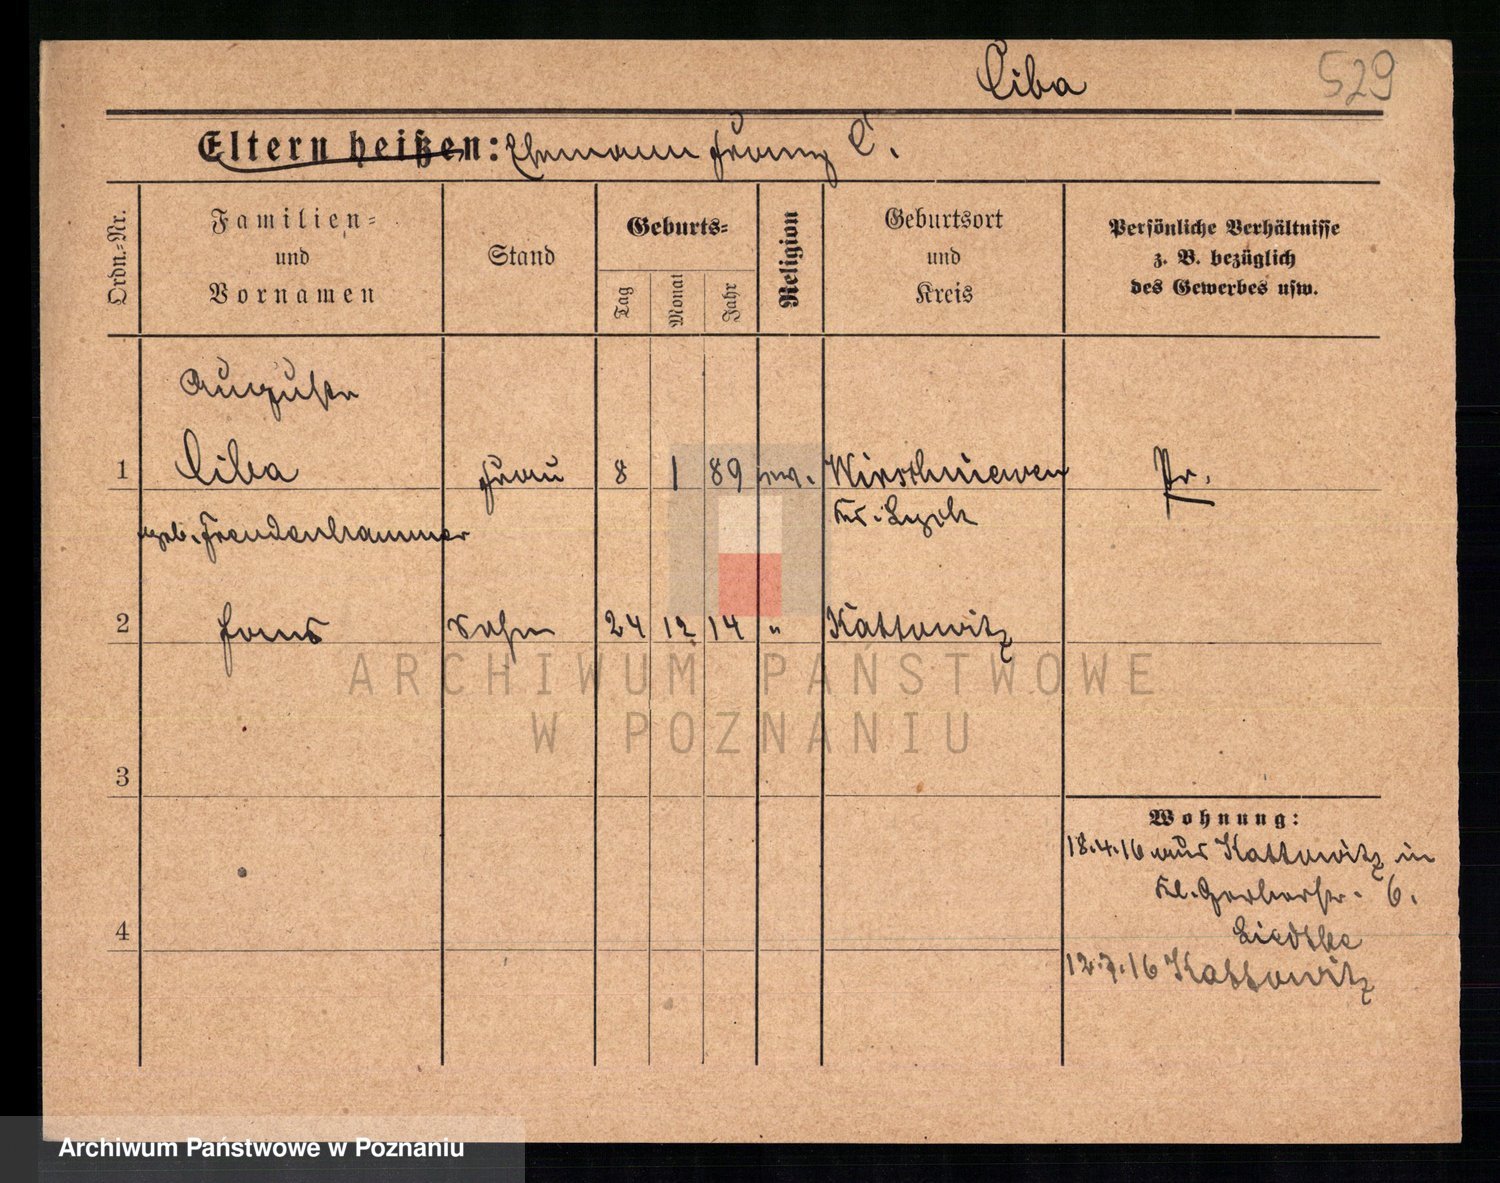 Ciba
529
Eltern heißen: Ehemann Franz C.
Ordn.-Nr.
Familien-
und
Vornamen
Stand
Geburts-
Tag
Monat
Jahr
Religion
Geburtsort
und
Kreis
Persönliche Verhältnisse
z. B. bezüglich
des Gewerbes usw.
Auguste
1 Ciba Frau 8 1 89 ev. Pr.
geb. Freudenhammer Kr. Lyck
2 Hans Sohn 24 12 14 " Kattowitz
ARCHIWUM PAŃSTWOWE
W POZNANIU
3
Wohnung:
18.4.16 aus Kattowitz in
Kl. Gerberstr. 6.
4
Liedtke
12.7.16 Kattowitz
Archiwum Państwowe w Poznaniu